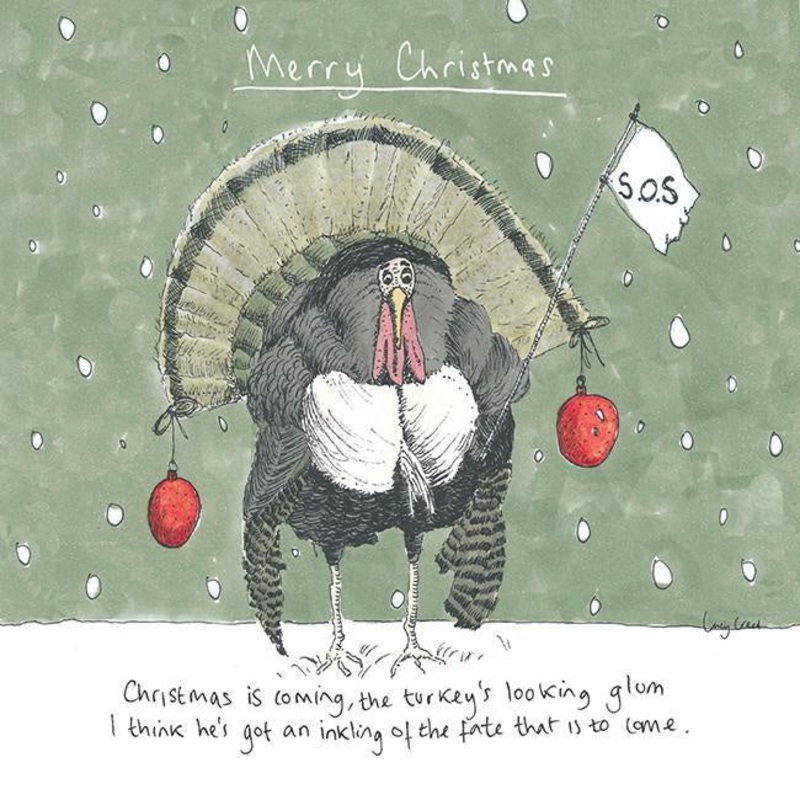 Merry Christmas
S.O.S
Christmas is coming, the turkey's looking glum
I think he's got an inkling of the fate that is to come.